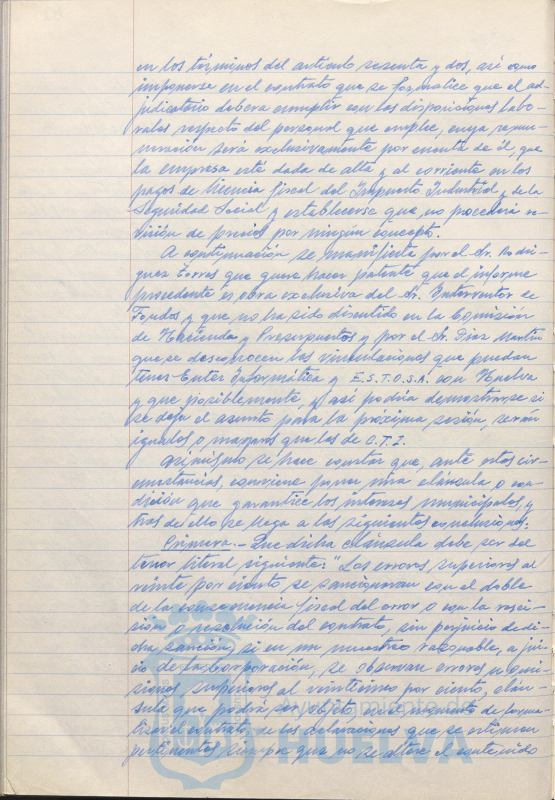 en los términos del artículo sesenta y dos, así como
imponerse en el contrato que se formalice que el ad-
judicatario deberá cumplir con las disposiciones labo-
rales respecto del personal que emplee, cuya remu-
neración será exclusivamente por cuenta de él, que
la empresa esté dada de alta y al corriente en los
pagos de licencia fiscal del Impuesto Industrial y de la
Seguridad Social y establecerse que no procederá re-
visión de precios por ningún concepto.
A continuación se manifiesta por el Sr. Rodrí-
guez Torres que quiere hacer patente que el informe
precedente es obra exclusiva del Sr. Interventor de
Fondos y que no ha sido discutido en la Comisión
de Hacienda y Presupuestos y por el Sr. Díaz Martín
que se desconocen las vinculaciones que puedan
tener Enter Informática y E.S.T.O.S.A. con Huelva
y que posiblemente, y así podría demostrarse si
se deja el asunto para la próxima sesión, serán
iguales o mayores que las de C.T.I.
Asimismo se hace constar que, ante estas cir-
cunstancias, conviene poner una cláusula o con-
dición que garantice los intereses municipales, y
tras de ello se llega a las siguientes conclusiones:
Primera.- Que dicha cláusula debe ser del
tenor literal siguiente: "Los errores superiores al
veinte por ciento, se sancionaran con el doble
de la consecuencia fiscal del error o con la resci-
sión o resolución del contrato, sin perjuicio de di-
cha sanción, si en un muestreo razonable, a jui-
cio de la Corporación, se observan errores u omi-
siones superiores al veinticinco por ciento, cláu-
sula que podrá ser objeto, en el momento de forma-
lizar el contrato, de las aclaraciones que se estimen
pertinentes siempre que no se altere el contenido
HUELVA